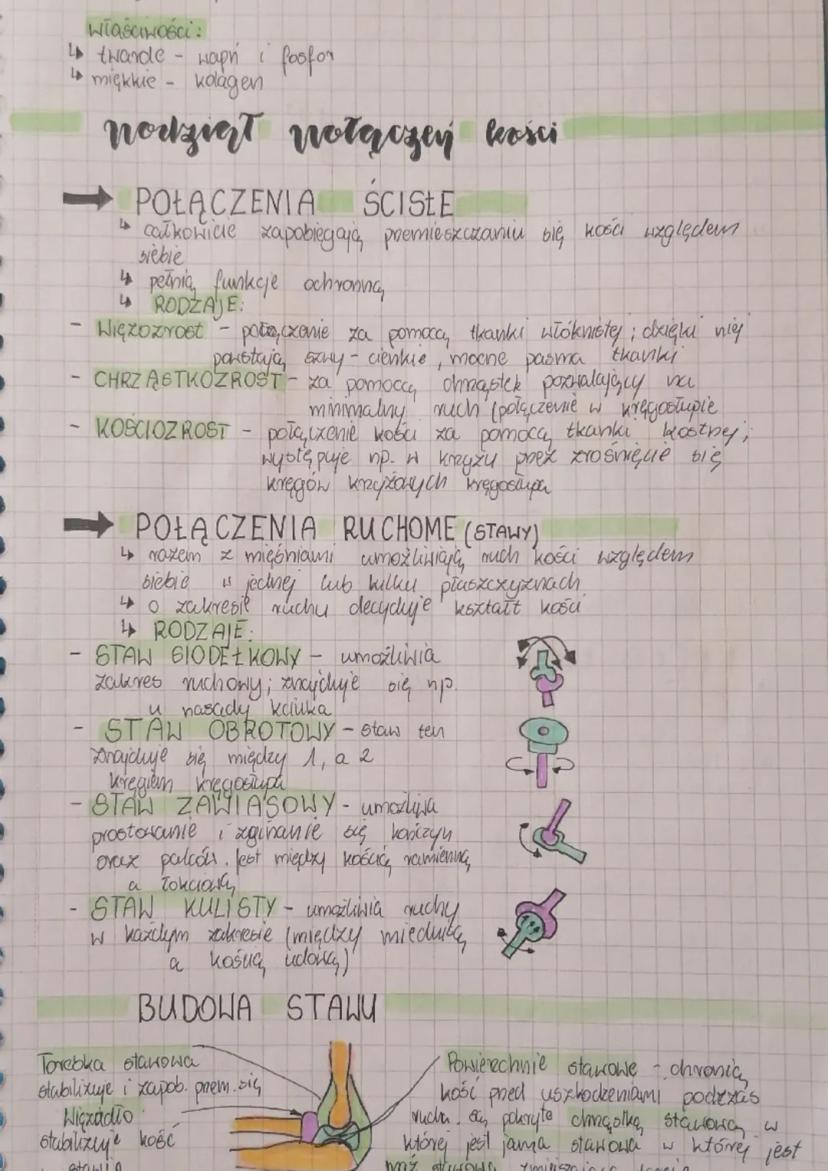 właściwości:
↳ twarde - wapń i fosfor
↳ miękkie - kolagen
Podział połączeń kości
→ POŁĄCZENIA ŚCISŁE
↳ całkowicie zapobiegają przemieszczaniu się kości względem
siebie
↳ pełnią funkcje ochronną
↳ RODZAJE:
- WIĘZOZROST - połączenie za pomocą tkanki włóknistej; dzięki niej
powstają szwy - cienkie, mocne pasma tkanki
- CHRZĄSTKOZROST - za pomocą chrząstek pozwalający na
minimalny ruch (połączenie w kręgosłupie
- KOŚCIOZROST - połączenie kości za pomocą tkanki kostnej;
występuje np. w krzyżu przez zrośnięcie się
kręgów krzyżowych kręgosłupa
→ POŁĄCZENIA RUCHOME (STAWY)
↳ razem z mięśniami umożliwiają ruch kości względem
siebie w jednej lub kilku płaszczyznach
↳ o zakresie ruchu decyduje kształt kości
↳ RODZAJE:
- STAW SIODEŁKOWY - umożliwia
zakres ruchowy; znajduje się np.
u nasady kciuka
- STAW OBROTOWY - staw ten
znajduje się między 1, a 2
kręgiem kręgosłupa
- STAW ZAWIASOWY - umożliwia
prostowanie i zginanie się kończyn
oraz palców. Jest między kością ramienną,
a łokciową
- STAW KULISTY - umożliwia ruchy
w każdym zakresie (między miednicą,
a kością udową)
BUDOWA STAWU
Torebka stawowa
stabilizuje i zapob. przem. się
Więzadło
stabilizuje kość
w stawie
Powierzchnie stawowe - chronią
kość przed uszkodzeniami podczas
ruchu. Są pokryte chrząstką stawową w
której jest jama stawowa w której jest
maź stawowa